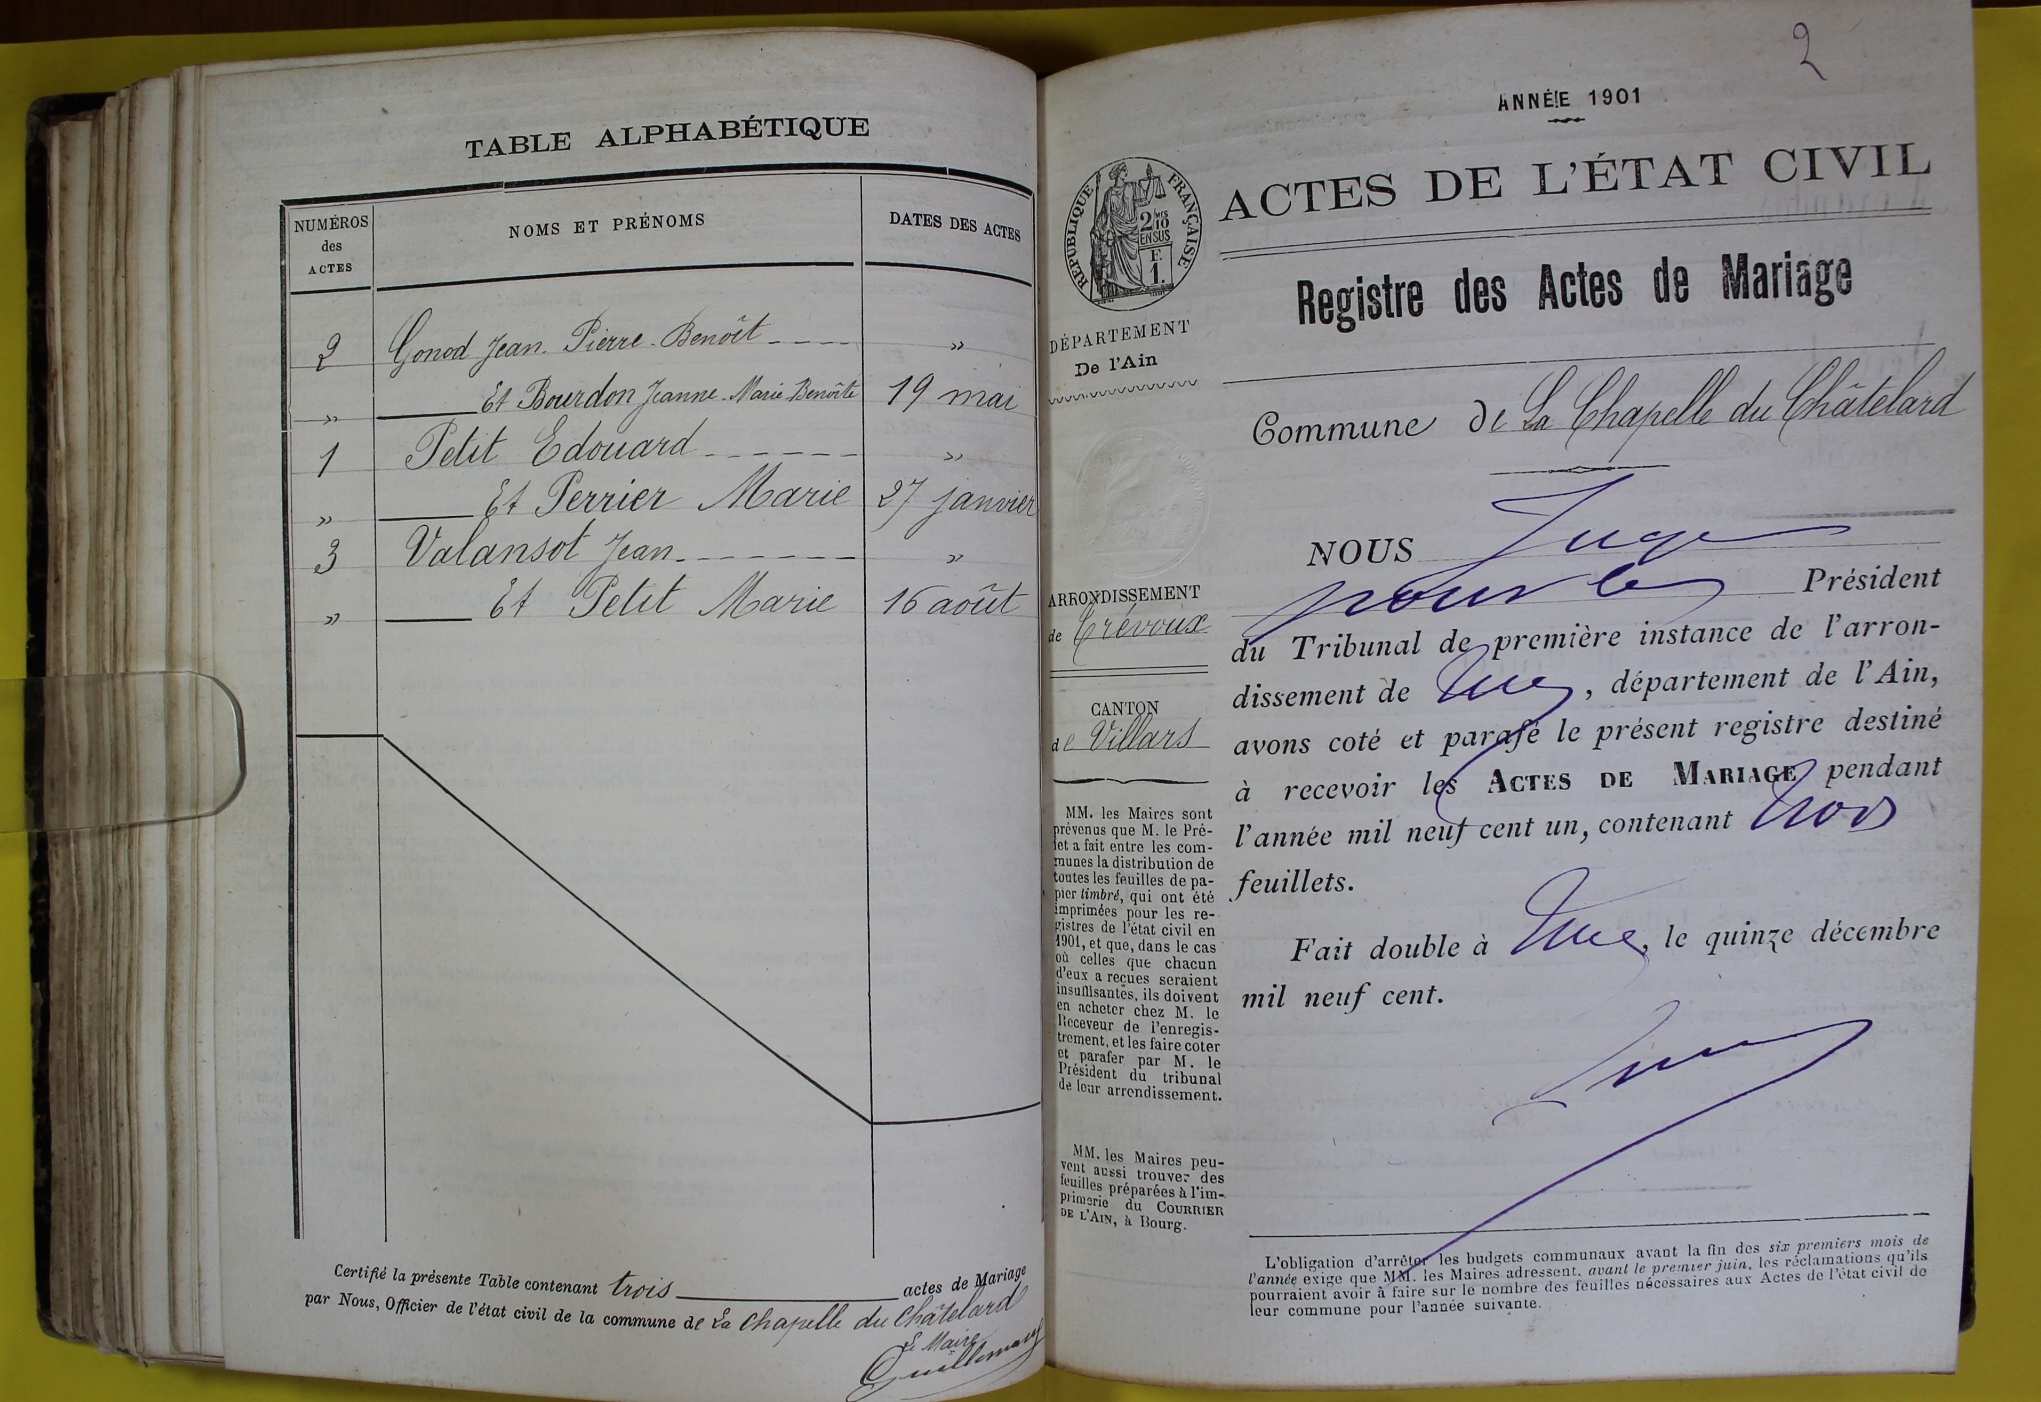 TABLE ALPHABÉTIQUE
NUMÉROS
des
ACTES
NOMS ET PRÉNOMS
DATES DES ACTES
2 Gonod Jean-Pierre-Benoît - - - - »
» Et Bourdon Jeanne-Marie Benoîte 19 mai
1 Petit Edouard - - - - - - »
» Et Perrier Marie 27 janvier
3 Valansot Jean - - - - - - - »
» Et Petit Marie 16 août
Certifié la présente Table contenant trois actes de Mariage
par Nous, Officier de l'état civil de la commune de La Chapelle du Châtelard
Le Maire
2
ANNÉE 1901
RÉPUBLIQUE FRANÇAISE
2 10
EN SUS
F.
1.
ACTES DE L'ÉTAT CIVIL
Registre des Actes de Mariage
DÉPARTEMENT
De l'Ain
Commune de La Chapelle du Châtelard
ARRONDISSEMENT
de Trévoux
CANTON
de Villars
MM. les Maires sont
prévenus que M. le Pré-
fet a fait entre les com-
munes la distribution de
toutes les feuilles de pa-
pier timbré, qui ont été
imprimées pour les re-
gistres de l'état civil en
1901, et que, dans le cas
où celles que chacun
d'eux a reçues seraient
insuffisantes, ils doivent
en acheter chez M. le
Receveur de l'enregis-
trement, et les faire coter
et parafer par M. le
Président du tribunal
de leur arrondissement.
MM. les Maires peu-
vent aussi trouver des
feuilles préparées à l'im-
primerie du COURRIER
DE L'AIN, à Bourg.
NOUS Juge
pour le Président
du Tribunal de première instance de l'arron-
dissement de , département de l'Ain,
avons coté et parafé le présent registre destiné
à recevoir les ACTES DE MARIAGE pendant
l'année mil neuf cent un, contenant trois
feuillets.
Fait double à , le quinze décembre
mil neuf cent.
L'obligation d'arrêter les budgets communaux avant la fin des six premiers mois de
l'année exige que MM. les Maires adressent, avant le premier juin, les réclamations qu'ils
pourraient avoir à faire sur le nombre des feuilles nécessaires aux Actes de l'état civil de
leur commune pour l'année suivante.